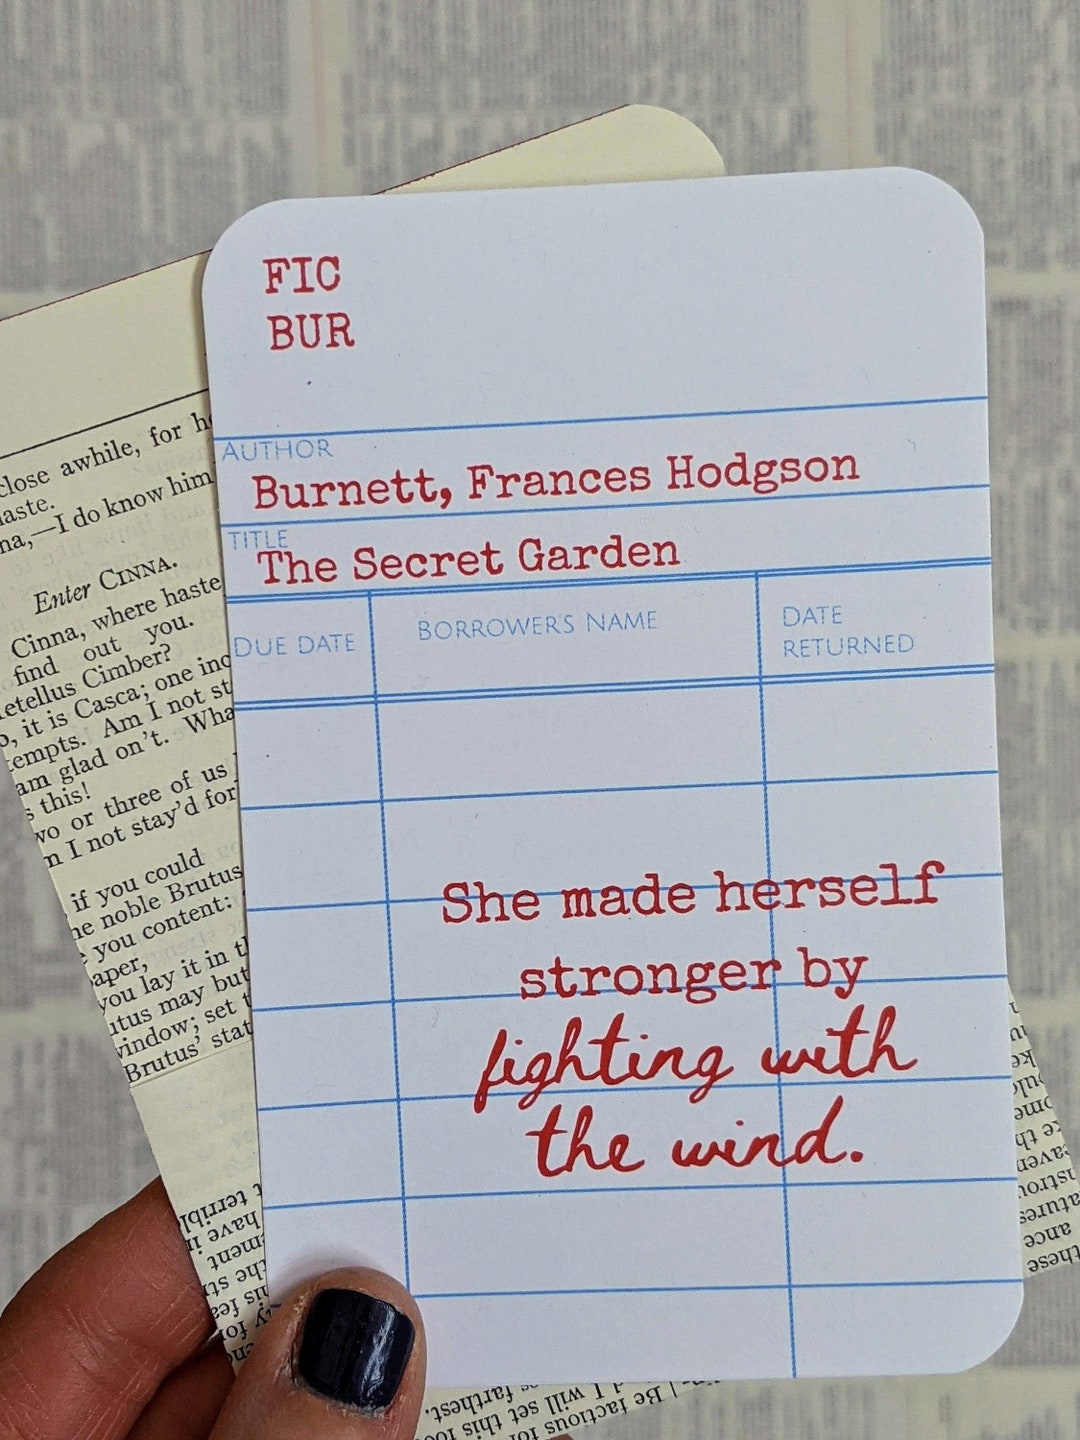 FIC
BUR
AUTHOR
Burnett, Frances Hodgson
TITLE
The Secret Garden
DUE DATE
BORROWER'S NAME
DATE
RETURNED
She made herself
stronger by
fighting with
the wind.
close awhile, for
haste.
I do know him
Enter CINNA.
Cinna, where haste
find out you.
etellus Cimber?
it is Casca; one
Am I not
am glad on't.
this!
or three of us
I not stay'd for
if you could
noble Brutus
you content:
you lay it in
may but
window; set
Brutus' 
terrible
have
the
farthest.
I will set this
Be factious